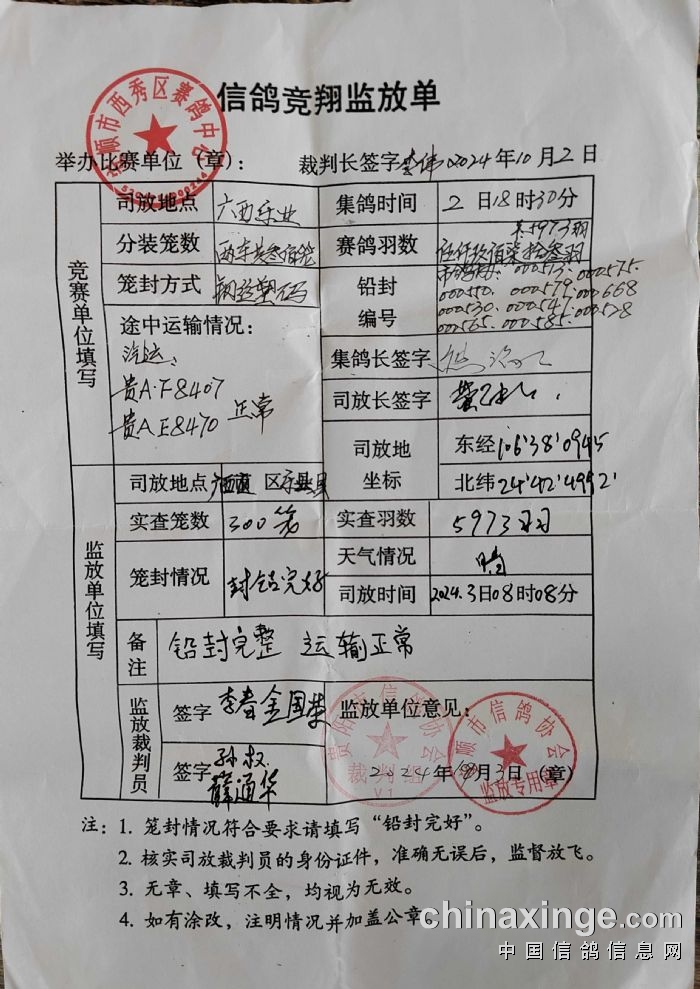 信鸽竞翔监放单
安顺市西秀区赛鸽中心
举办比赛单位（章）： 裁判长签字 2024年10月2日
竞赛单位填写
司放地点 广西乐业 集鸽时间 2日18时30分
分装笼数 两车共叁佰笼 赛鸽羽数 共5973羽
伍仟玖佰柒拾叁羽
笼封方式 铅封 000573. 000575.
000550. 000579. 000668
编号 000530. 000547. 000528
000565. 000585.
途中运输情况：
汽运
贵A·F8407
贵A E8470 正常
集鸽长签字
司放长签字
司放地 坐标 东经106'38'0945
北纬24'42'4992'
监放单位填写
司放地点 广西 区 乐业县
实查笼数 300笼 实查羽数 5973羽
笼封情况 封铅完好 天气情况 晴
司放时间 2024.3日08时08分
备注 铅封完整 运输正常
监放裁判员
签字 李春 金国荣 监放单位意见：
签字 孙权
薛通华
贵阳市信鸽协会
裁判组
V.1
安顺市信鸽协会
监放专用章
2024年10月3日（章）
注：1. 笼封情况符合要求请填写“铅封完好”。
2. 核实司放裁判员的身份证件，准确无误后，监督放飞。
3. 无章、填写不全，均视为无效。
4. 如有涂改，注明情况并加盖公章
chinaxinge.com
中国信鸽信息网